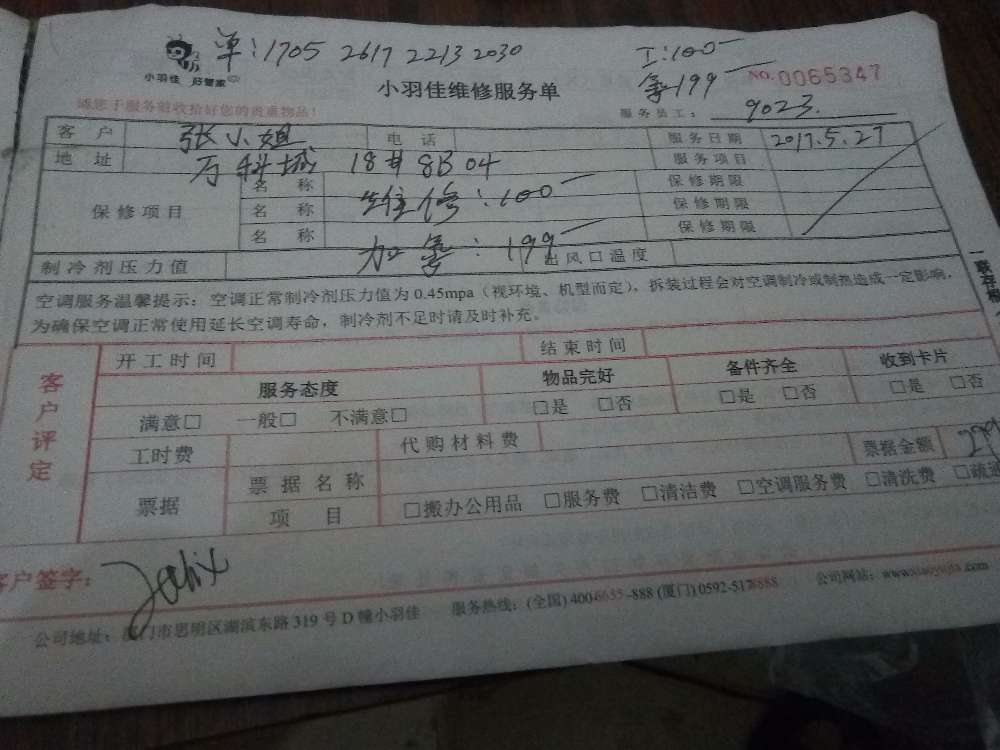 单:1705 2617 2213 2030
工:100
小羽佳 好管家
小羽佳维修服务单
199
NO.0065347
请您于服务前收拾好您的贵重物品!
服务员工: 9023.
客 户 张小姐 电 话 服务日期 2017.5.27
地 址 万科城 18# 8B 04 服务项目
保修项目 名 称 维修:100 保修期限
名 称 保修期限
名 称 加 : 199 保修期限
制冷剂压力值 出风口温度
空调服务温馨提示:空调正常制冷剂压力值为0.45mpa(视环境、机型而定),拆装过程会对空调制冷或制热造成一定影响,
为确保空调正常使用延长空调寿命,制冷剂不足时请及时补充。
客户评定
开工时间 结束时间
服务态度 物品完好 备件齐全 收到卡片
满意□ 一般□ 不满意□ □是 □否 □是 □否 □是 □否
工时费 代购材料费 票据金额
票据 票据名称
项 目 □搬办公用品 □服务费 □清洁费 □空调服务费 □清洗费 □疏通
客户签字:
公司地址:厦门市思明区湖滨东路319号D幢小羽佳 服务热线:(全国)4006655-888(厦门)0592-5178888 公司网站:www.xiaoyujia.com